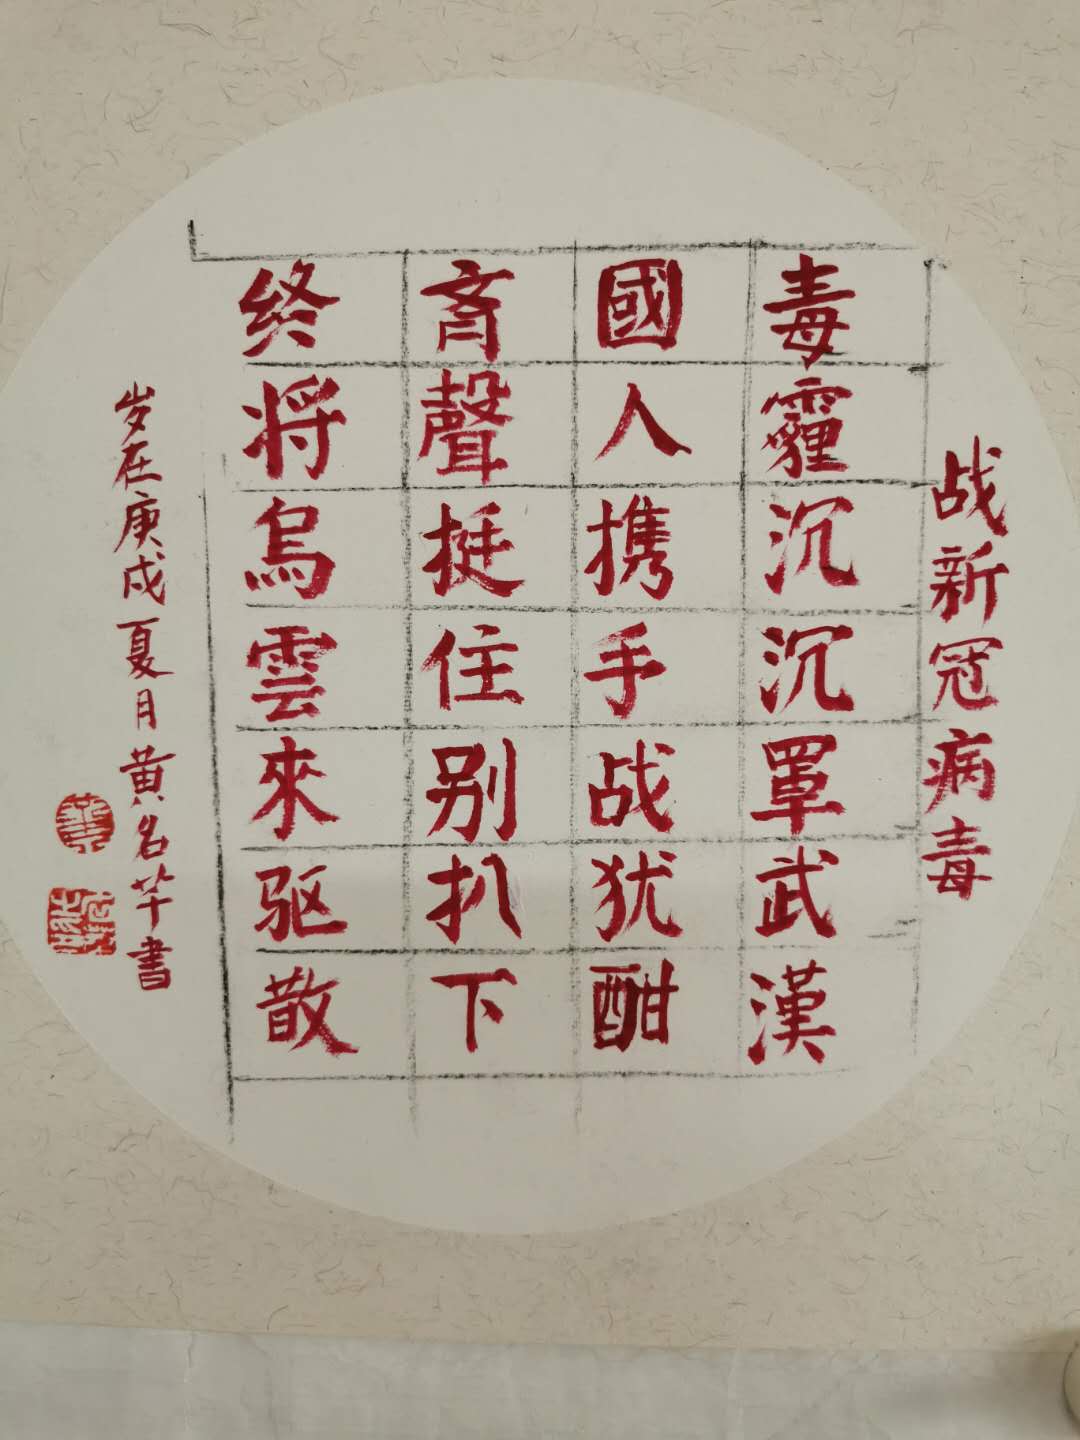 战新冠病毒
毒霾沉沉罩武漢
國人携手战犹酣
斉聲挺住别扒下
终将烏雲來驱散
岁在庚戌夏月黄名芊書